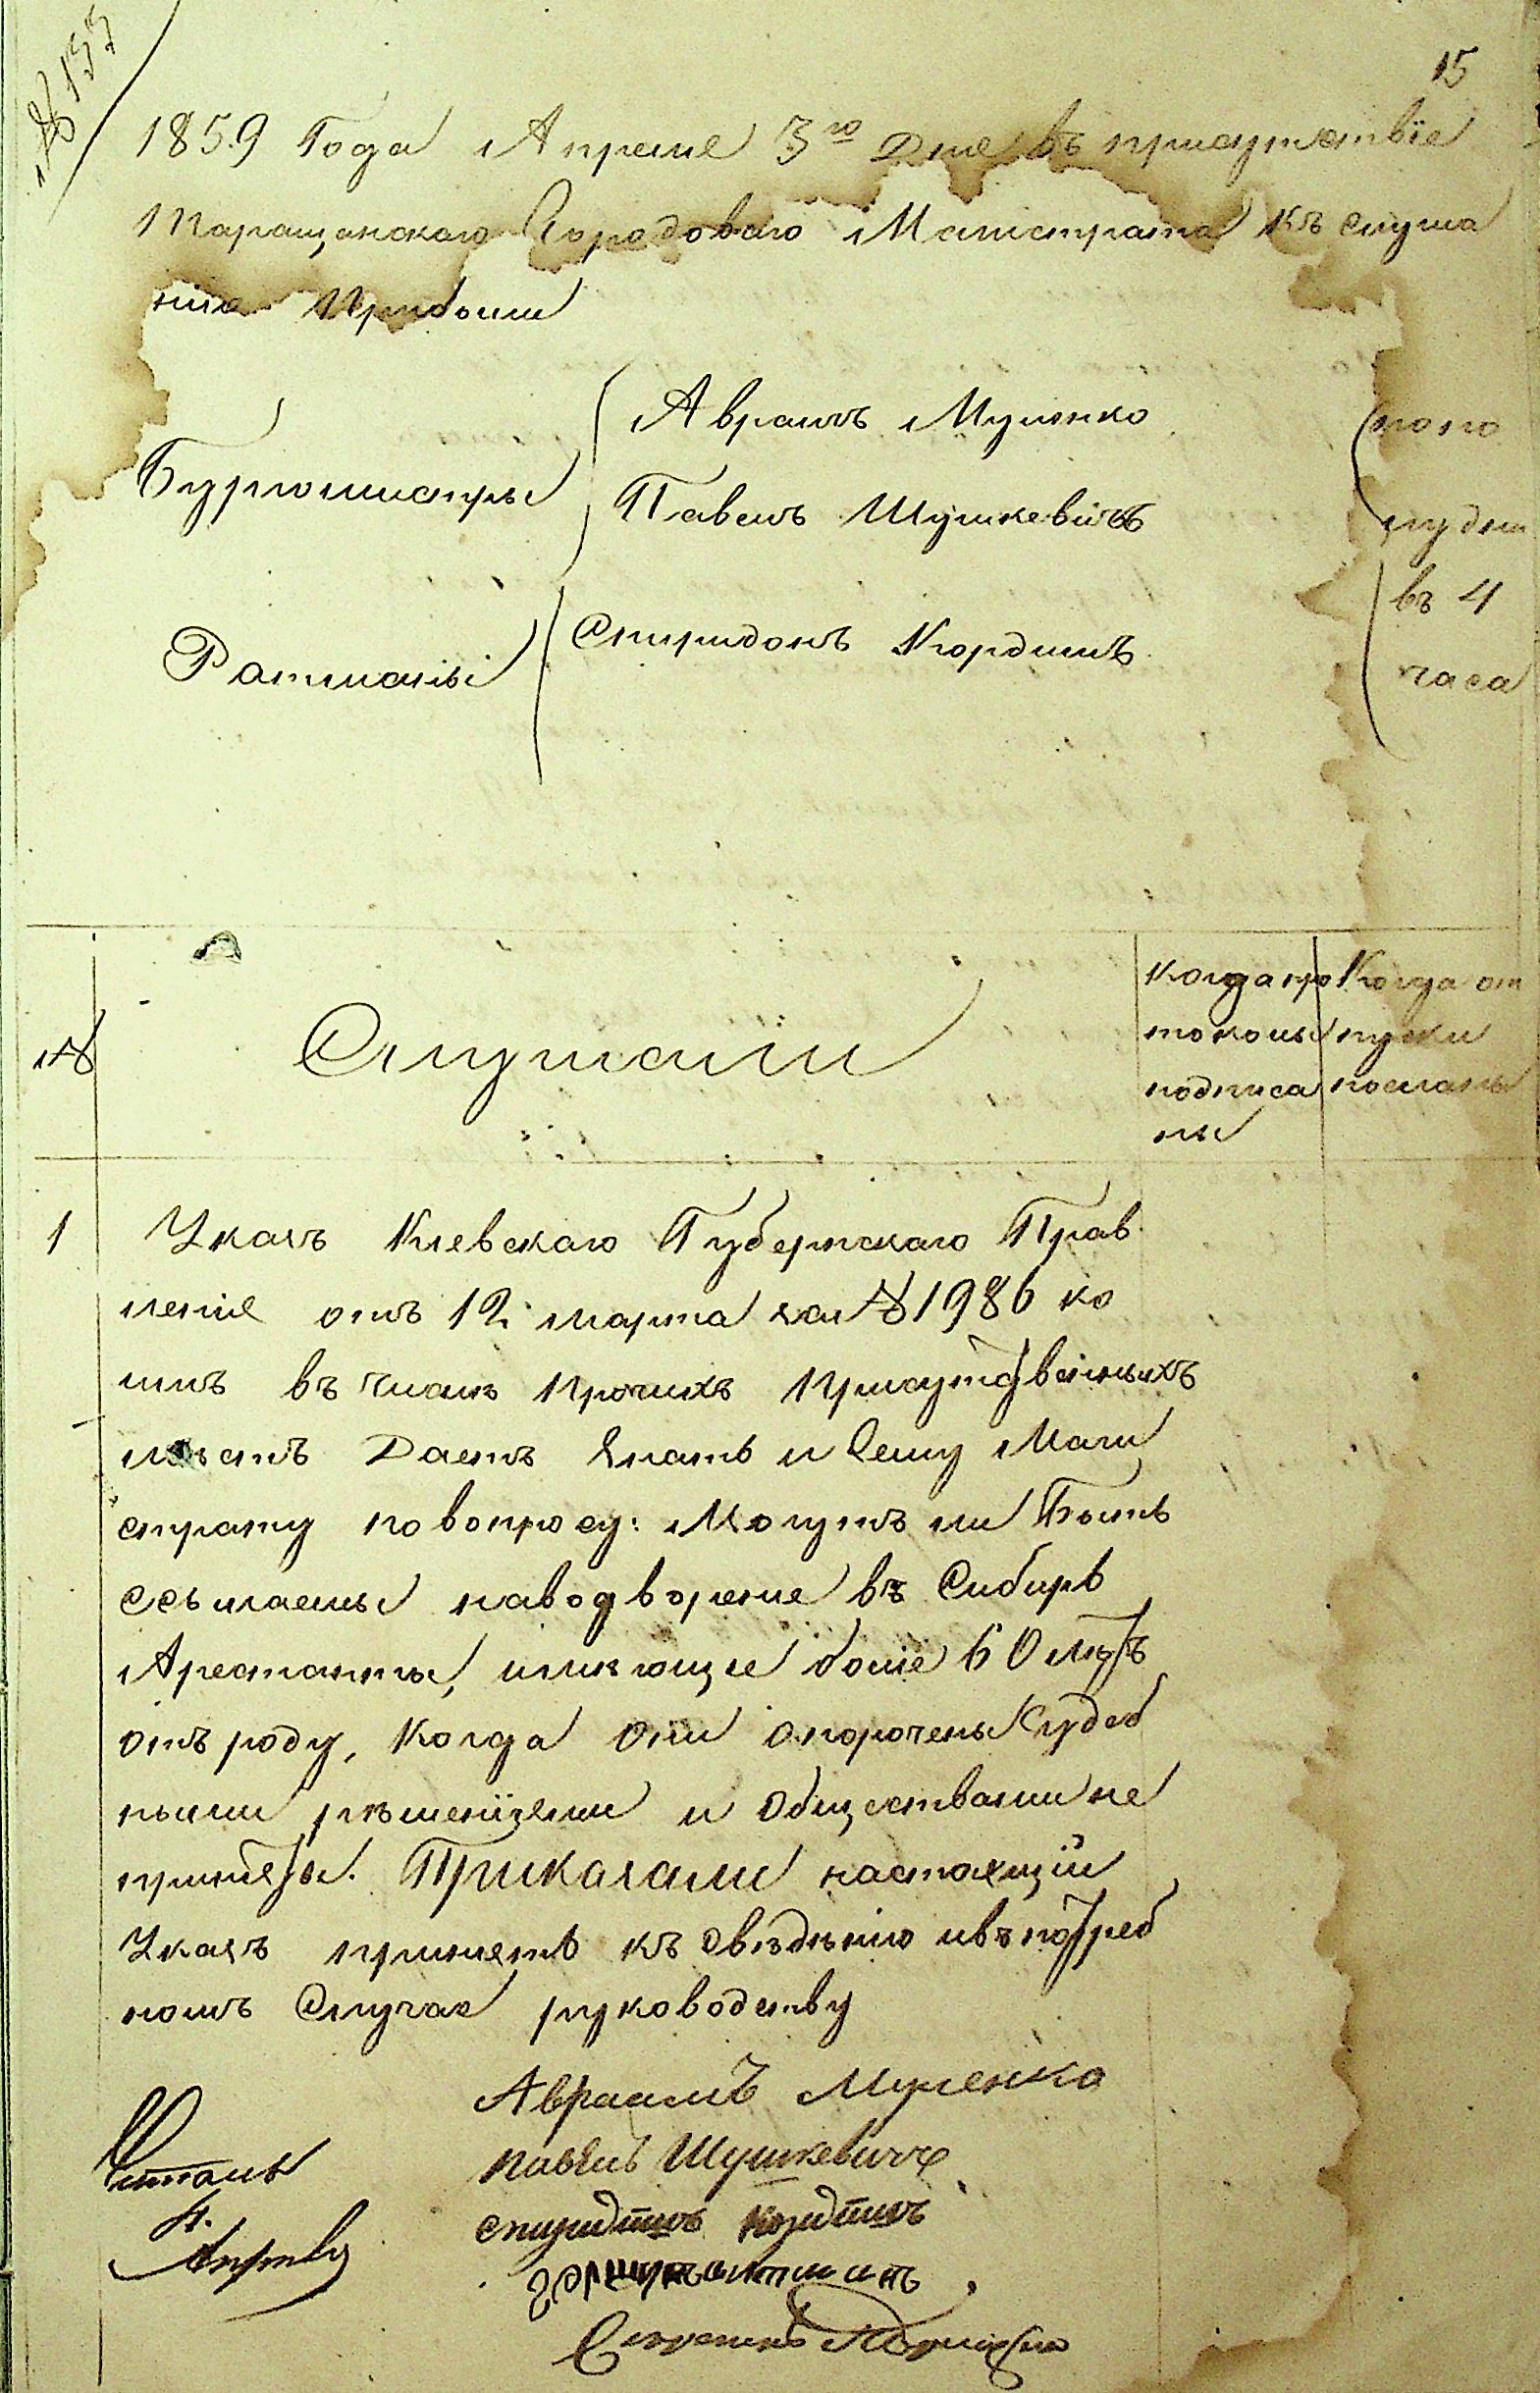 № 133
15
1859 Года Апреля 3го Дня въ присутствіе
Таращанскаго Городоваго Магистрата Къ слуша
нію Прибыли
Бургомистры
Авраамъ Муленко
Павелъ Шушкевичъ
Ратманы
Спиридонъ Кордишъ
попо
лудни
въ 4
часа
№
Слушали
Когда про
токолы
подписа
ны
Когда от
пуски
посланы
1
Указъ Кіевскаго Губернскаго Прав
ленія отъ 12 марта за № 1986 ко
имъ въ числѣ прочихъ присутственныхъ
мѣстъ Даетъ Знать и Сему Маги
страту по вопросу: Могутъ ли Быть
Ссылаемы наводвореніе въ Сибирь
Арестанты, имѣющіе боліе 60 лѣтъ
отъ роду, Когда они опорочены Судеб
ными рѣшеніями и Обществами не
приняты. Приказали настоящій
Указъ принять къ Свѣдѣнію ивъ потреб
номъ Случаѣ руководству
Авраамъ Муленко
Павелъ Шушкевичъ
Спиридонъ Кордишъ
Читалъ